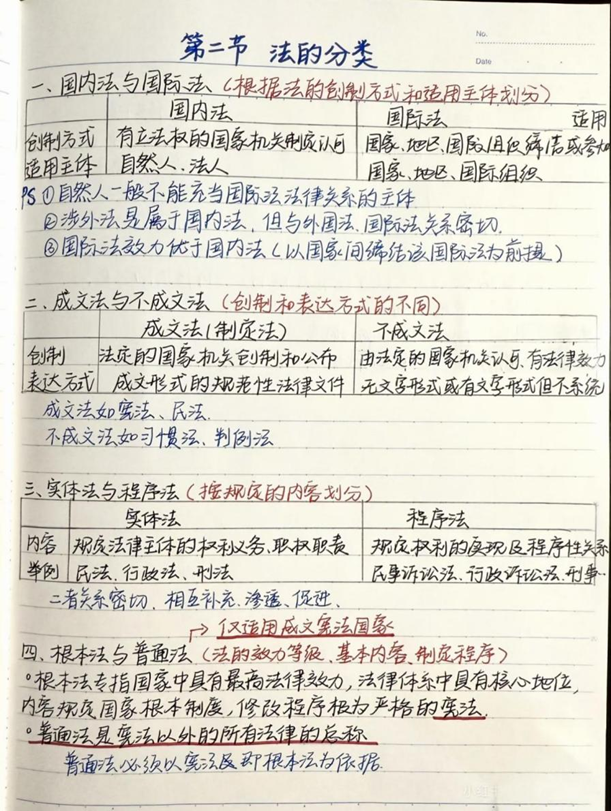 No.
Date
第二节 法的分类
一、国内法与国际法(根据法的创制方式和适用主体划分)
国内法 国际法 适用
创制方式 有立法权的国家机关制定认可 国家、地区、国际组织缔结或参加
适用主体 自然人、法人 国家、地区、国际组织
PS ①自然人一般不能充当国际法法律关系的主体
②涉外法是属于国内法,但与外国法、国际法关系密切.
③国际法效力优于国内法(以国家间缔结该国际法为前提)
二、成文法与不成文法(创制和表达方式的不同)
成文法(制定法) 不成文法
创制 法定的国家机关创制和公布 由法定的国家机关认可、有法律效力
表达方式 成文形式的规范性法律文件 无文字形式或有文字形式但不系统
成文法如宪法、民法.
不成文法如习惯法、判例法
三、实体法与程序法(按规定的内容划分)
实体法 程序法
内容 规定法律主体的权利义务、职权职责 规定权利的实现及程序性关系
举例 民法、行政法、刑法 民事诉讼法、行政诉讼法、刑事..
二者关系密切、相互补充、渗透、促进.
仅适用成文宪法国家
四、根本法与普通法(法的效力等级、基本内容、制定程序)
°根本法专指国家中具有最高法律效力,法律体系中具有核心地位,
内容规定国家根本制度,修改程序极为严格的宪法.
°普通法是宪法以外的所有法律的总称
普通法必须以宪法及即根本法为依据.